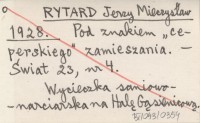 RYTARD Jerzy Mieczysław
1928. Pod znakiem „ce-
perskiego" zamieszania. —
Świat 23, nr 4.
Wycieczka saniowo-
-narciarska na Halę Gąsienicową.